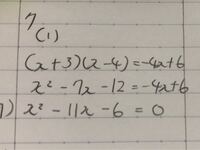 7
(1)
(x+3)(x-4)=-4x+6
x²-7x-12=-4x+6
7) x²-11x-6=0